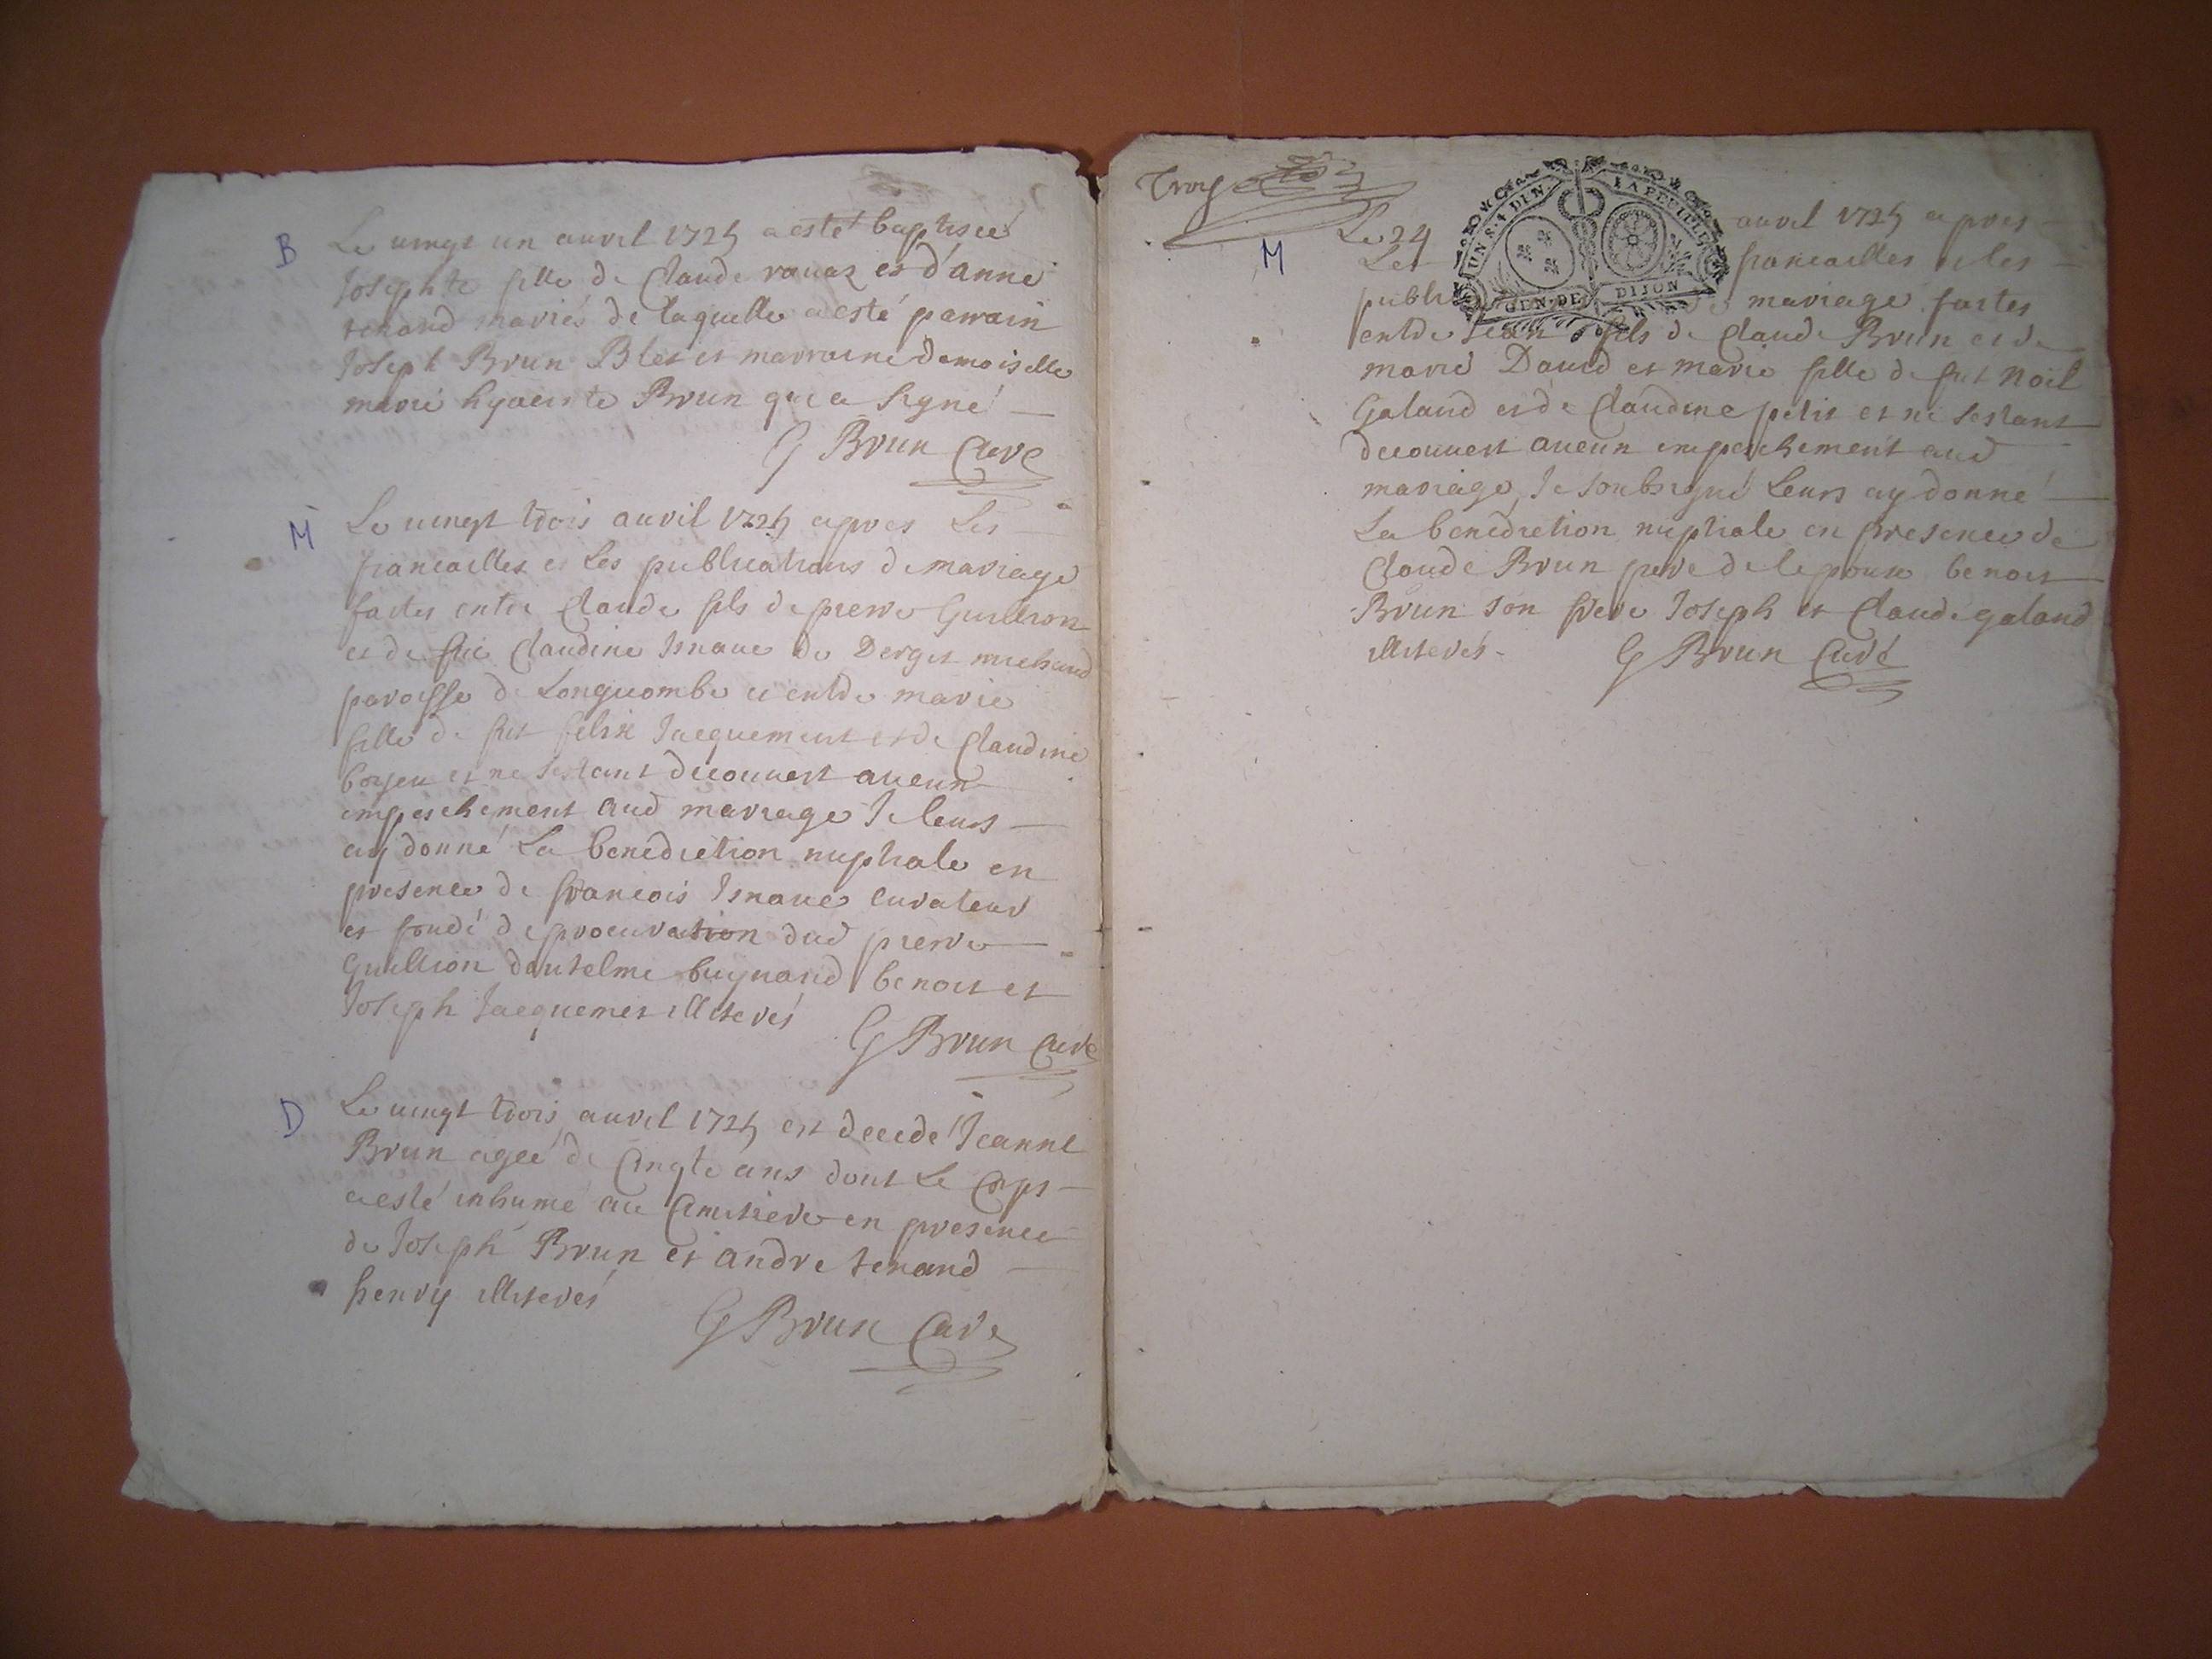 B
Le vingt un avril 1725 a esté baptisée
Josephte fille de Claude ravaz et d'anne
tenand mariés de laquelle a esté parrain
Joseph Brun Blet et marraine demoiselle
marie hyacinte Brun qui a signé
G Brun Curé
M
Le vingt trois avril 1725 apres Les
fiancailles et Les publications de mariage
faites entre Claude fils de pierre Guillion
et de fue Claudine
paroisse de Longecombe et entre marie
fille de fut felix Jacquemet et de Claudine
et ne sestant decouvert aucun
impeschement aud mariage Je leurs
ay donné La benediction nuptiale en
presence de francois curateur
et fondé de procuration dud pierre
Guillion dantelme buynand benoit et
Joseph Jacquemet illiterés
G Brun Curé
D
Le vingt trois avril 1725 est decedé Jeanne
Brun agée de Cinqte ans dont Le Corps
a esté inhumé au Cimetiere en presence
de Joseph Brun et andre tenand
henry illiterés
G Brun Curé
Troy
UN S. 4 DEN. LA FEUILLE
GEN. DE DIJON
M
Le 24 avril 1725 apres
Les fiancailles et les
publi mariage faites
entre Jean fils de Claude Brun et de
marie David et marie fille de fut Noël
Galand et de Claudine petit et ne sestant
decouvert aucun impeschement aud
mariage Je soubsigné Leurs ay donné
La benediction nuptiale en presence de
Claude Brun pere de lepoux benoit
Brun son frere Joseph et Claude galand
illiterés
G Brun Curé